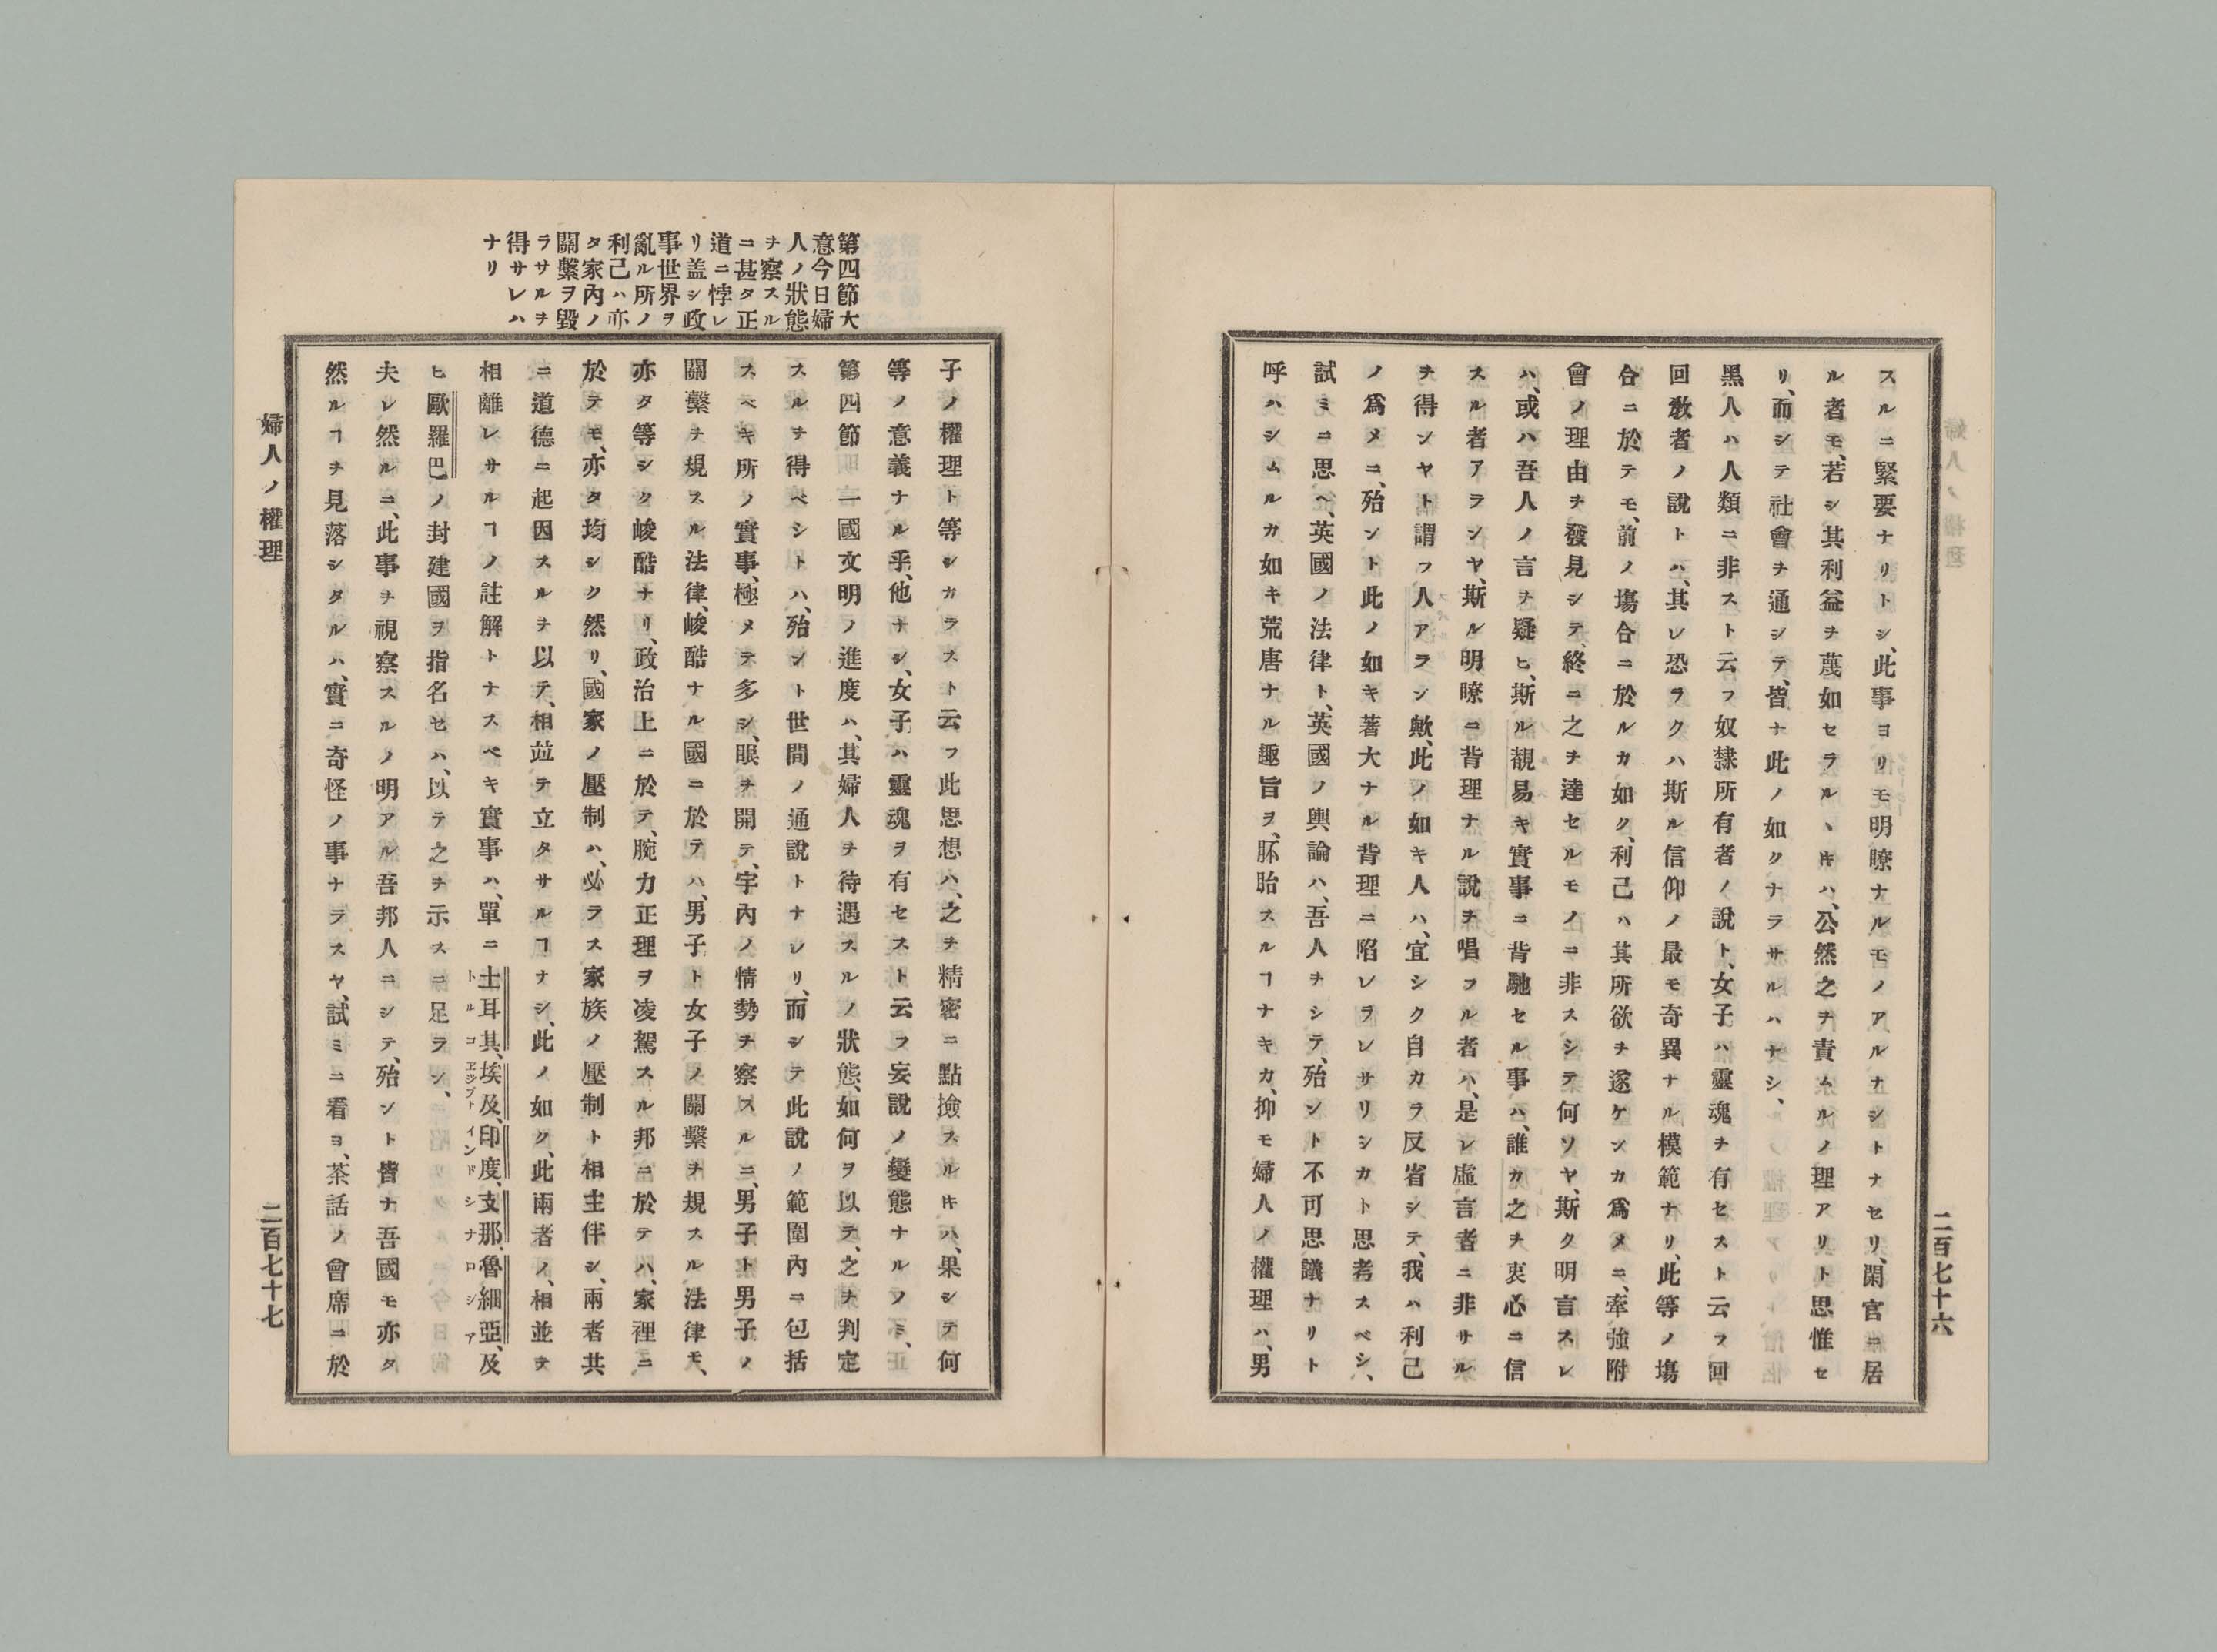 スルニ緊要ナリトシ、此事ヨリモ明瞭ナルモノアルナシトナセリ、閑官ニ居
ル者モ、若シ其利益ヲ蔑如セラルヽキハ、公然之ヲ責ムルノ理アリト思惟セ
リ、而シテ社會ヲ通シテ、皆ナ此ノ如クナラサルハナシ、
黑人ハ人類ニ非スト云フ奴隷所有者ノ說ト、女子ハ靈魂ヲ有セスト云フ回
回敎者ノ說トハ、其レ恐ラクハ斯ル信仰ノ最モ奇異ナル模範ナリ、此等ノ塲
合ニ於テモ、前ノ塲合ニ於ルカ如ク、利己ハ其所欲ヲ遂ケンカ爲メニ、牽强附
會ノ理由ヲ發見シテ、終ニ之ヲ達セルモノニ非スシテ何ソヤ、斯ク明言スレ
ハ、或ハ吾人ノ言ヲ疑ヒ、斯ル覩易キ實事ニ背馳セル事ハ、誰カ之ヲ衷心ニ信
スル者アランヤ、斯ル明瞭ニ背理ナル說ヲ唱フル者ハ、是レ虛言者ニ非サル
ヲ得ンヤト謂フ人アラン歟、此ノ如キ人ハ、宜シク自カラ反省シテ、我ハ利己
ノ爲メニ、殆ント此ノ如キ著大ナル背理ニ陷レラレサリシカト思考スベシ、
試ミニ思ヘ、英國ノ法律ト、英國ノ輿論ハ、吾人ヲシテ、殆ント不可思議ナリト
呼ハシムルカ如キ荒唐ナル趣旨ヲ、胚胎スルヿナキカ、抑モ婦人ノ權理ハ、男
二百七十六
第四節大
意今日婦
人ノ狀態
ヲ察スル
ニ甚タ正
道ニ悖レ
リ盖シ政
事世界ヲ
亂ル所ノ
利己ハ亦
タ家內ノ
關繫ヲ毀
ラサルヲ
得サレハ
ナリ
子ノ權理ト等シカラスト云フ此思想ハ、之ヲ精密ニ點撿スルキハ、果シテ何
等ノ意義ナル乎、他ナシ、女子ハ靈魂ヲ有セスト云フ妄說ノ變態ナルノミ、
第四節、一國文明ノ進度ハ、其婦人ヲ待遇スルノ狀態、如何ヲ以テ、之ヲ判定
スルヲ得ベシトハ、殆ント世間ノ通說トナレリ、而シテ此說ノ範圍內ニ包括
スベキ所ノ實事、極メテ多シ、眼ヲ開テ、宇內ノ情勢ヲ察スルニ、男子ト男子ノ
關繫ヲ規スル法律、峻酷ナル國ニ於テハ、男子ト女子ノ關繫ヲ規スル法律モ、
亦タ等シク峻酷ナリ、政治上ニ於テ、腕力正理ヲ凌駕スル邦ニ於テハ、家裡ニ
於テモ、亦タ均シク然リ、國家ノ壓制ハ、必ラス家族ノ壓制ト相主伴シ、兩者共
ニ道德ニ起因スルヲ以テ、相竝テ立タサルヿナシ、此ノ如ク、此兩者ノ、相並テ
相離レサルヿノ註解トナスベキ實事ハ、單ニ土耳其、埃及、印度、支那、魯細亞、及
トルコ エジプト インド シナ ロシア
ヒ歐羅巴ノ封建國ヲ指名セハ、以テ之ヲ示スニ足ラン、
夫レ然ルニ、此事ヲ視察スルノ明アル吾邦人ニシテ、殆ント皆ナ吾國モ亦タ
然ルヿヲ見落シタルハ、實ニ奇怪ノ事ナラスヤ、試ミニ看ヨ、茶話ノ會席ニ於
婦人ノ權理
二百七十七